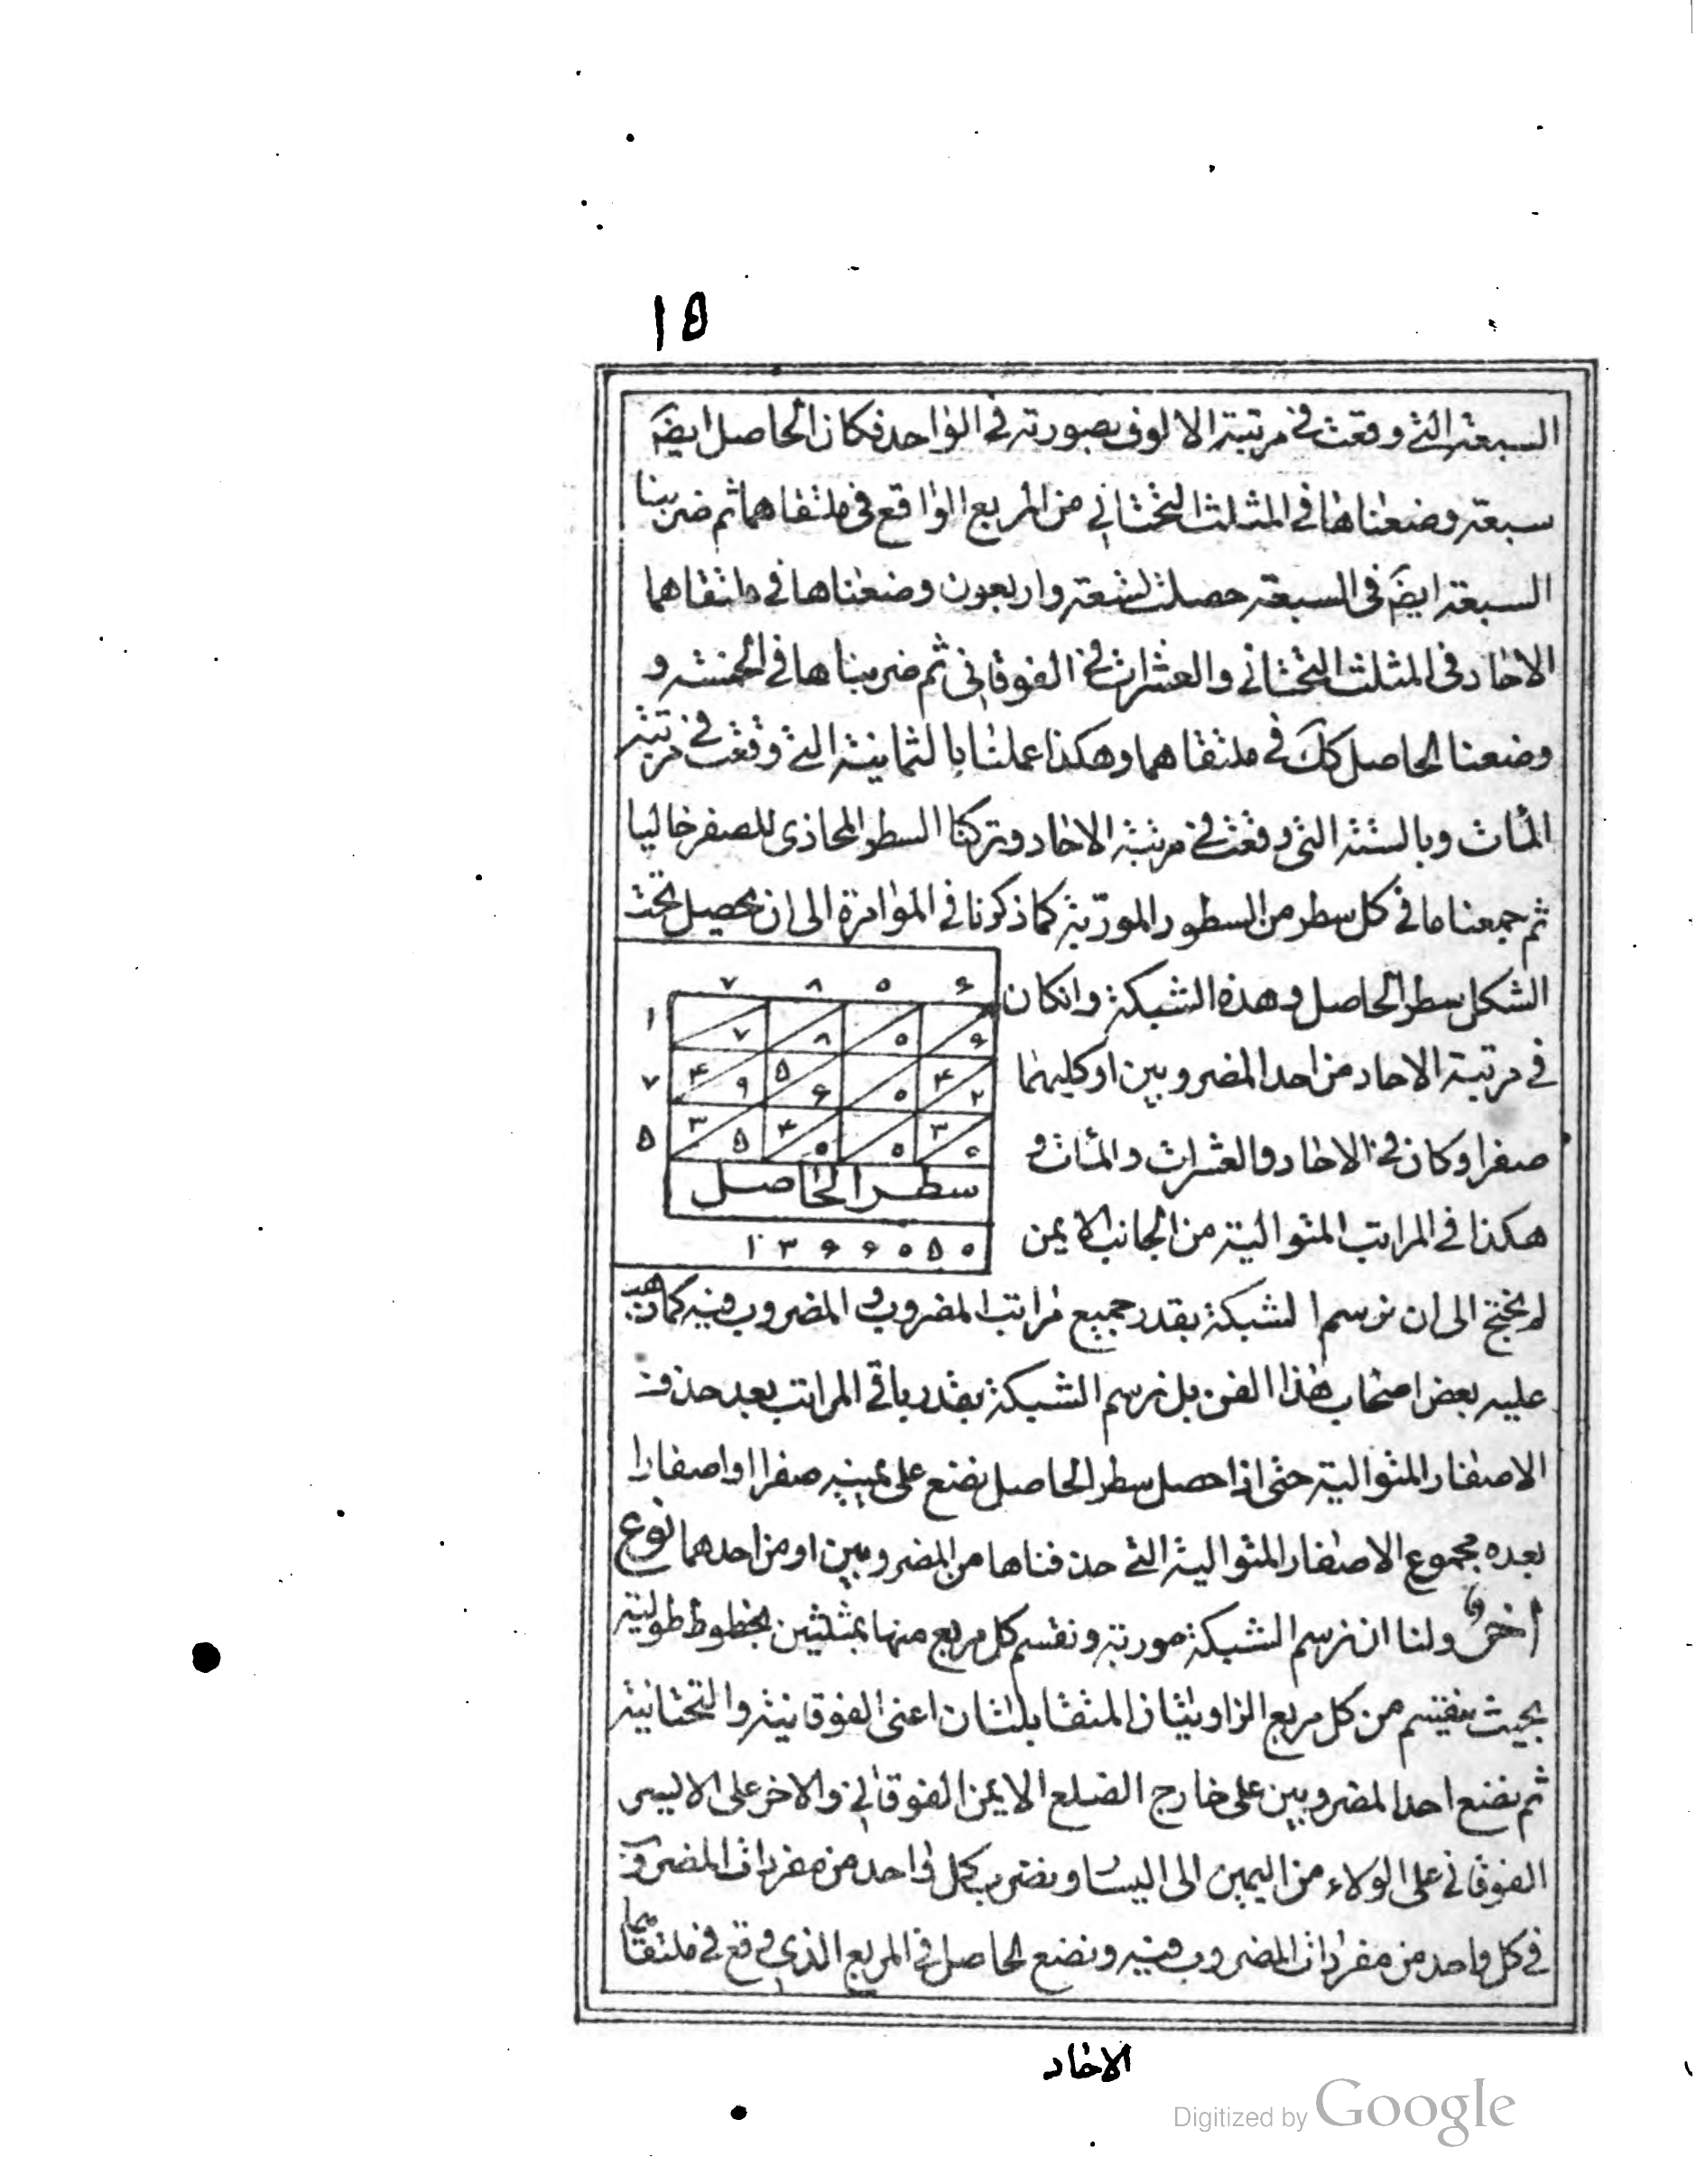 ١٥
السبعة التي وقعت في مرتبة الالوف بصورته في الواحد فكان الحاصل ايضَ
سبعة وضعناها في المثلث التحتاني من المربع الواقع في ملتقاهما ثم ضربنا
السبعة ايضَ في السبعة حصلت تسعة واربعون وضعناها في ملتقاهما
الاحاد في المثلث التحتاني والعشرات في الفوقاني ثم ضربناها في الخمسة و
وضعنا الحاصل كك في ملتقاهما وهكذا عملنا بالثمانية التي وقعت في مرتبة
المأت وبالستة التي وقعت في مرتبة الاحاد وتركنا السطر المحاذى للصفر خاليا
ثم جمعنا ما في كل سطر من السطور المورّبة كما ذكرنا في المؤامرة الى ان يحصل تحت
الشكل سطر الحاصل وهذه الشبكة وانكان
٧ ٨ ٥ ٦
١ ٧ ٨ ٥ ٦
في مرتبة الاحاد من احد المضروبين او كليهما
٧ ۴ ٩ ۵ ٦ ٥ ۴ ٢
صفرا وكان في الاحاد والعشرات والمأت و
۵ ٣ ۵ ۴ ٥ ٥ ٣ ٥
سطر الحاصل
هكذا في المراتب المتوالية من الجانب الايمن
١ ٣ ٦ ٦ ٥ ۵ ٥
لم نحتج الى ان نرسم الشبكة بقدر جميع مراتب المضروب و المضروب فيه كما ذهب
عليه بعض اصحاب هذا الفن بل نرسم الشبكة بقدر باقي المراتب بعد حذف
الاصفار المتوالية حتى اذا حصل سطر الحاصل نضع على يمينه صفرا او اصفارا
بعده مجموع الاصفار المتوالية التي حذفناها من المضروبين او من احدهما نوع
اخر ولنا ان نرسم الشبكة موربة ونقسم كل مربع منها بمثلثين بخطوط طولية
بحيث ينقسم من كل مربع الزاويتان المتقابلتان اعنى الفوقانية والتحتانية
ثم نضع احد المضروبين على خارج الضلع الايمن الفوقاني والاخر على الايسر
الفوقاني على الولاء من اليمين الى اليسا ونضرب كل واحد من مفردات المضرو
في كل واحد من مفردات المضروب فيه ونضع الحاصل في المربع الذي وقع في ملتقاهما
الاحاد
Digitized by Google